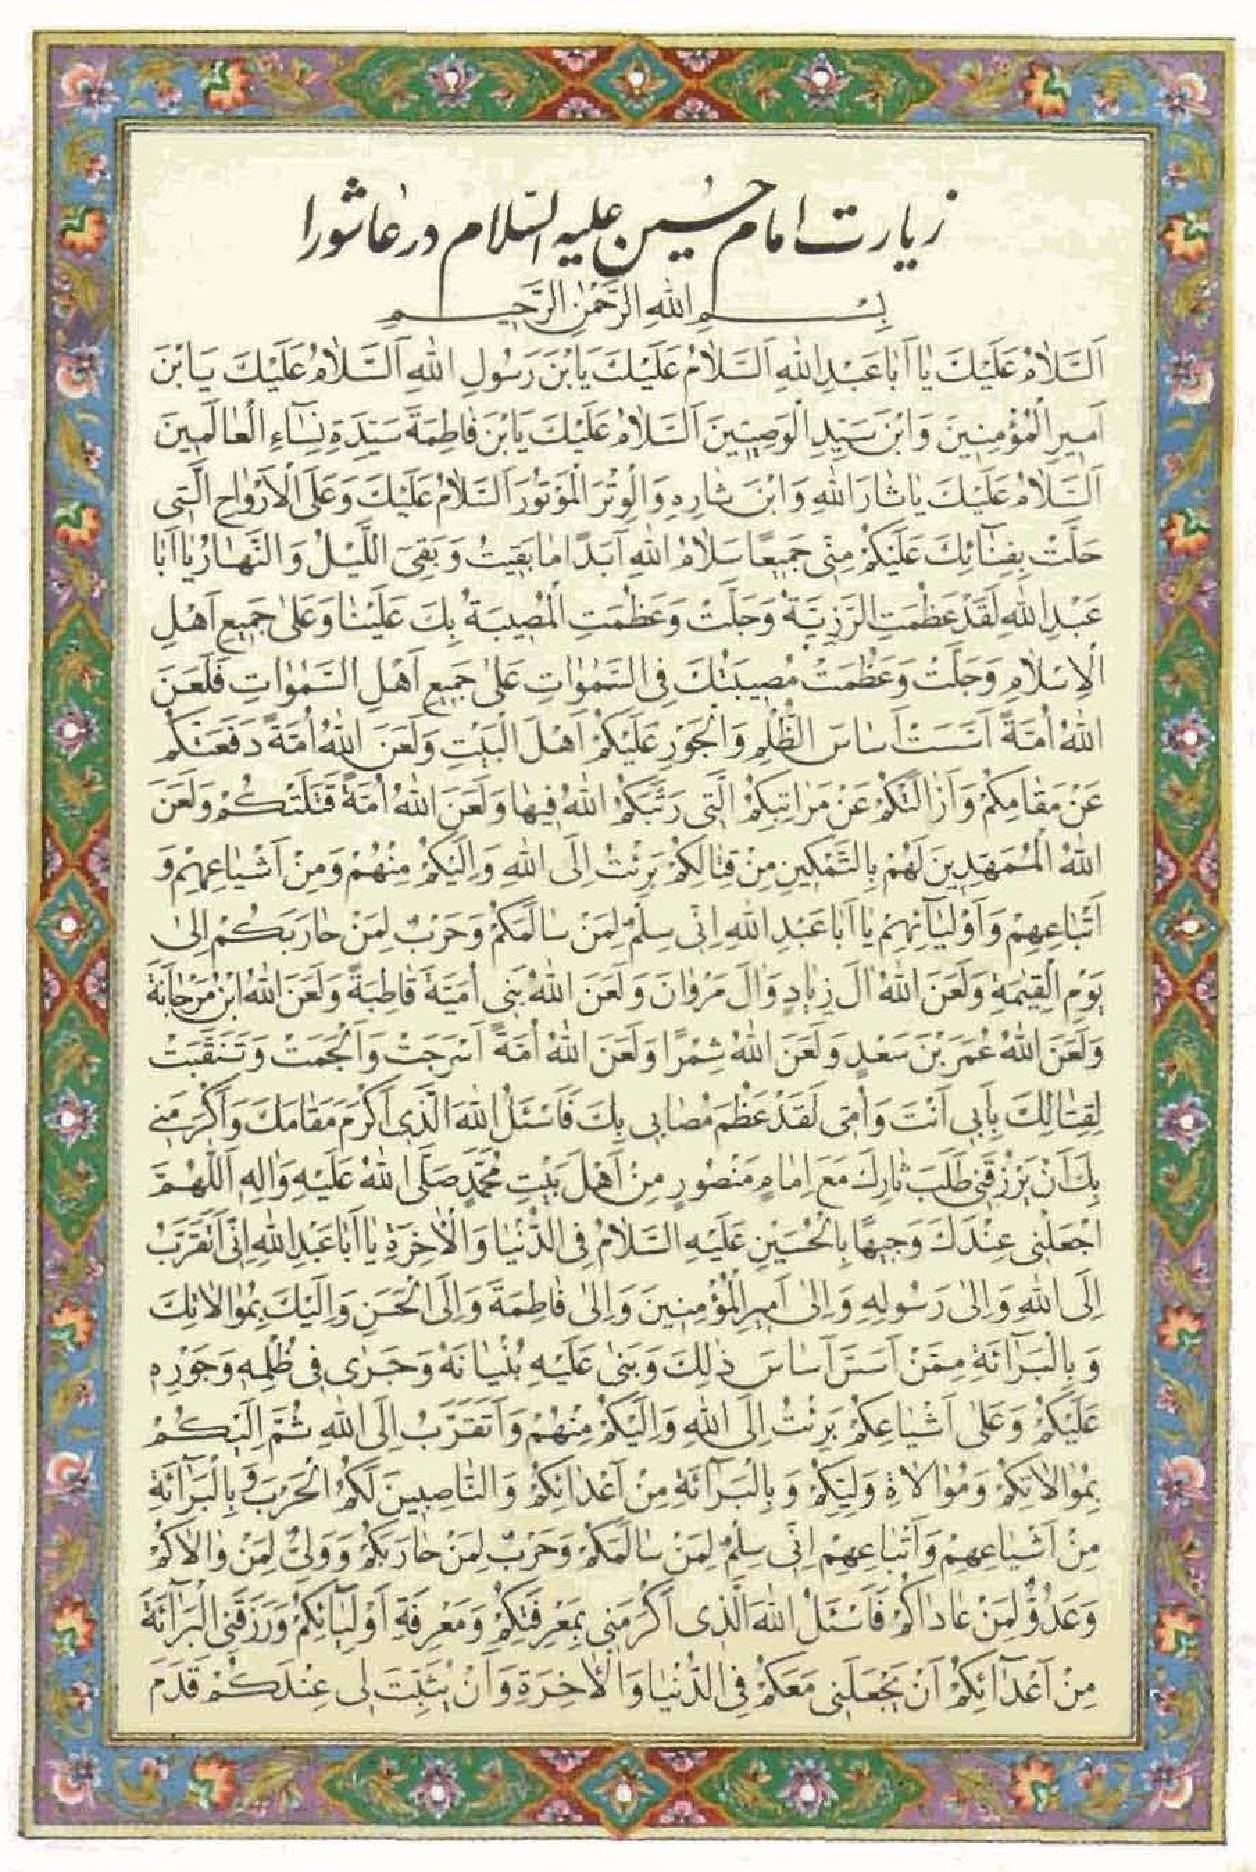 زیارت امام حسین علیه السّلام در عاشورا
بِسْمِ اللهِ الرَّحْمٰنِ الرَّحِيمِ
اَلسَّلٰامُ عَلَيْكَ يٰا اَبٰا عَبْدِ اللهِ اَلسَّلٰامُ عَلَيْكَ يَابْنَ رَسُولِ اللهِ اَلسَّلٰامُ عَلَيْكَ يَابْنَ
اَمِيرِ الْمُؤْمِنِينَ وَابْنَ سَيِّدِ الْوَصِيِّينَ اَلسَّلٰامُ عَلَيْكَ يَابْنَ فٰاطِمَةَ سَيِّدَةِ نِسٰآءِ الْعٰالَمِينَ
اَلسَّلٰامُ عَلَيْكَ يٰا ثٰارَ اللهِ وَابْنَ ثٰارِهِ وَالْوِتْرَ الْمَوْتُورَ اَلسَّلٰامُ عَلَيْكَ وَعَلَى الْاَرْوٰاحِ الَّتِي
حَلَّتْ بِفِنٰآئِكَ عَلَيْكُمْ مِنّٖي جَمِيعًا سَلٰامُ اللهِ اَبَدًا مٰا بَقِيتُ وَ بَقِيَ اللَّيْلُ وَ النَّهٰارُ يٰا اَبٰا
عَبْدِ اللهِ لَقَدْ عَظُمَتِ الرَّزِيَّةُ وَجَلَّتْ وَعَظُمَتِ الْمُصِيبَةُ بِكَ عَلَيْنٰا وَعَلىٰ جَمِيعِ اَهْلِ
الْاِسْلٰامِ وَجَلَّتْ وَعَظُمَتْ مُصِيبَتُكَ فِي السَّمٰوٰاتِ عَلىٰ جَمِيعِ اَهْلِ السَّمٰوٰاتِ فَلَعَنَ
اللهُ اُمَّةً اَسَّسَتْ اَسٰاسَ الظُّلْمِ وَالْجَوْرِ عَلَيْكُمْ اَهْلَ الْبَيْتِ وَلَعَنَ اللهُ اُمَّةً دَفَعَتْكُمْ
عَنْ مَقٰامِكُمْ وَاَزٰالَتْكُمْ عَنْ مَرٰاتِبِكُمُ الَّتِي رَتَّبَكُمُ اللهُ فِيهٰا وَلَعَنَ اللهُ اُمَّةً قَتَلَتْكُمْ وَلَعَنَ
اللهُ الْمُمَهِّدِينَ لَهُمْ بِالتَّمْكِينِ مِنْ قِتٰالِكُمْ بَرِئْتُ اِلَى اللهِ وَاِلَيْكُمْ مِنْهُمْ وَمِنْ اَشْيٰاعِهِمْ وَ
اَتْبٰاعِهِمْ وَاَوْلِيٰآئِهِمْ يٰا اَبٰا عَبْدِ اللهِ اِنّٖي سِلْمٌ لِمَنْ سٰالَمَكُمْ وَحَرْبٌ لِمَنْ حٰارَبَكُمْ اِلىٰ
يَوْمِ الْقِيٰمَةِ وَلَعَنَ اللهُ اٰلَ زِيٰادٍ وَاٰلَ مَرْوٰانَ وَلَعَنَ اللهُ بَنِي اُمَيَّةَ قٰاطِبَةً وَلَعَنَ اللهُ ابْنَ مَرْجٰانَةَ
وَلَعَنَ اللهُ عُمَرَ بْنَ سَعْدٍ وَلَعَنَ اللهُ شِمْرًا وَلَعَنَ اللهُ اُمَّةً اَسْرَجَتْ وَاَلْجَمَتْ وَتَنَقَّبَتْ
لِقِتٰالِكَ بِاَبِي اَنْتَ وَاُمّٖي لَقَدْ عَظُمَ مُصٰابِي بِكَ فَاَسْئَلُ اللهَ الَّذِي اَكْرَمَ مَقٰامَكَ وَاَكْرَمَنِي
بِكَ اَنْ يَرْزُقَنِي طَلَبَ ثٰارِكَ مَعَ اِمٰامٍ مَنْصُورٍ مِنْ اَهْلِ بَيْتِ مُحَمَّدٍ صَلَّى اللهُ عَلَيْهِ وَاٰلِهِ اَللّٰهُمَّ
اجْعَلْنِي عِنْدَكَ وَجِيهًا بِالْحُسَيْنِ عَلَيْهِ السَّلٰامُ فِي الدُّنْيٰا وَالْاٰخِرَةِ يٰا اَبٰا عَبْدِ اللهِ اِنّٖي اَتَقَرَّبُ
اِلَى اللهِ وَاِلىٰ رَسُولِهِ وَاِلىٰ اَمِيرِ الْمُؤْمِنِينَ وَاِلىٰ فٰاطِمَةَ وَاِلَى الْحَسَنِ وَاِلَيْكَ بِمُوٰالٰاتِكَ
وَ بِالْبَرٰآئَةِ مِمَّنْ اَسَّسَ اَسٰاسَ ذٰلِكَ وَبَنىٰ عَلَيْهِ بُنْيٰانَهُ وَجَرىٰ فِي ظُلْمِهِ وَجَوْرِهِ
عَلَيْكُمْ وَعَلىٰ اَشْيٰاعِكُمْ بَرِئْتُ اِلَى اللهِ وَاِلَيْكُمْ مِنْهُمْ وَاَتَقَرَّبُ اِلَى اللهِ ثُمَّ اِلَيْكُمْ
بِمُوٰالٰاتِكُمْ وَمُوٰالٰاةِ وَلِيِّكُمْ وَ بِالْبَرٰآئَةِ مِنْ اَعْدٰائِكُمْ وَالنّٰاصِبِينَ لَكُمُ الْحَرْبَ وَ بِالْبَرٰآئَةِ
مِنْ اَشْيٰاعِهِمْ وَاَتْبٰاعِهِمْ اِنّٖي سِلْمٌ لِمَنْ سٰالَمَكُمْ وَحَرْبٌ لِمَنْ حٰارَبَكُمْ وَوَلِيٌّ لِمَنْ وٰالٰاكُمْ
وَعَدُوٌّ لِمَنْ عٰادٰاكُمْ فَاَسْئَلُ اللهَ الَّذِي اَكْرَمَنِي بِمَعْرِفَتِكُمْ وَمَعْرِفَةِ اَوْلِيٰآئِكُمْ وَرَزَقَنِي الْبَرٰآئَةَ
مِنْ اَعْدٰآئِكُمْ اَنْ يَجْعَلَنِي مَعَكُمْ فِي الدُّنْيٰا وَالْاٰخِرَةِ وَاَنْ يُثَبِّتَ لِي عِنْدَكُمْ قَدَمَ